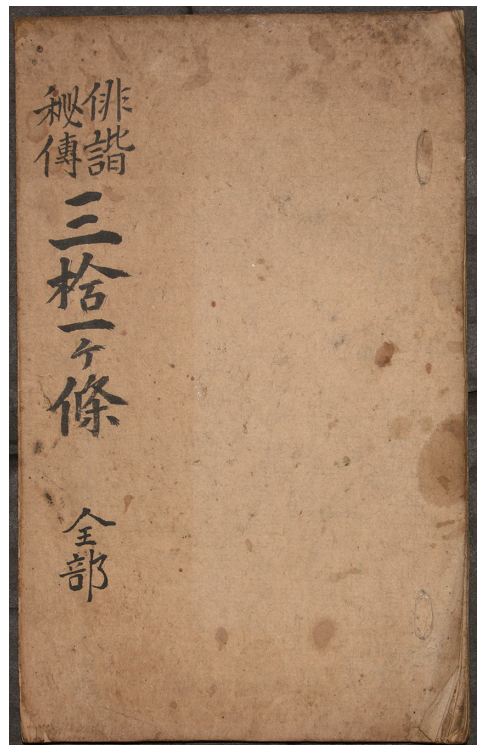 俳諧
秘傳
三拾一ケ條
全部